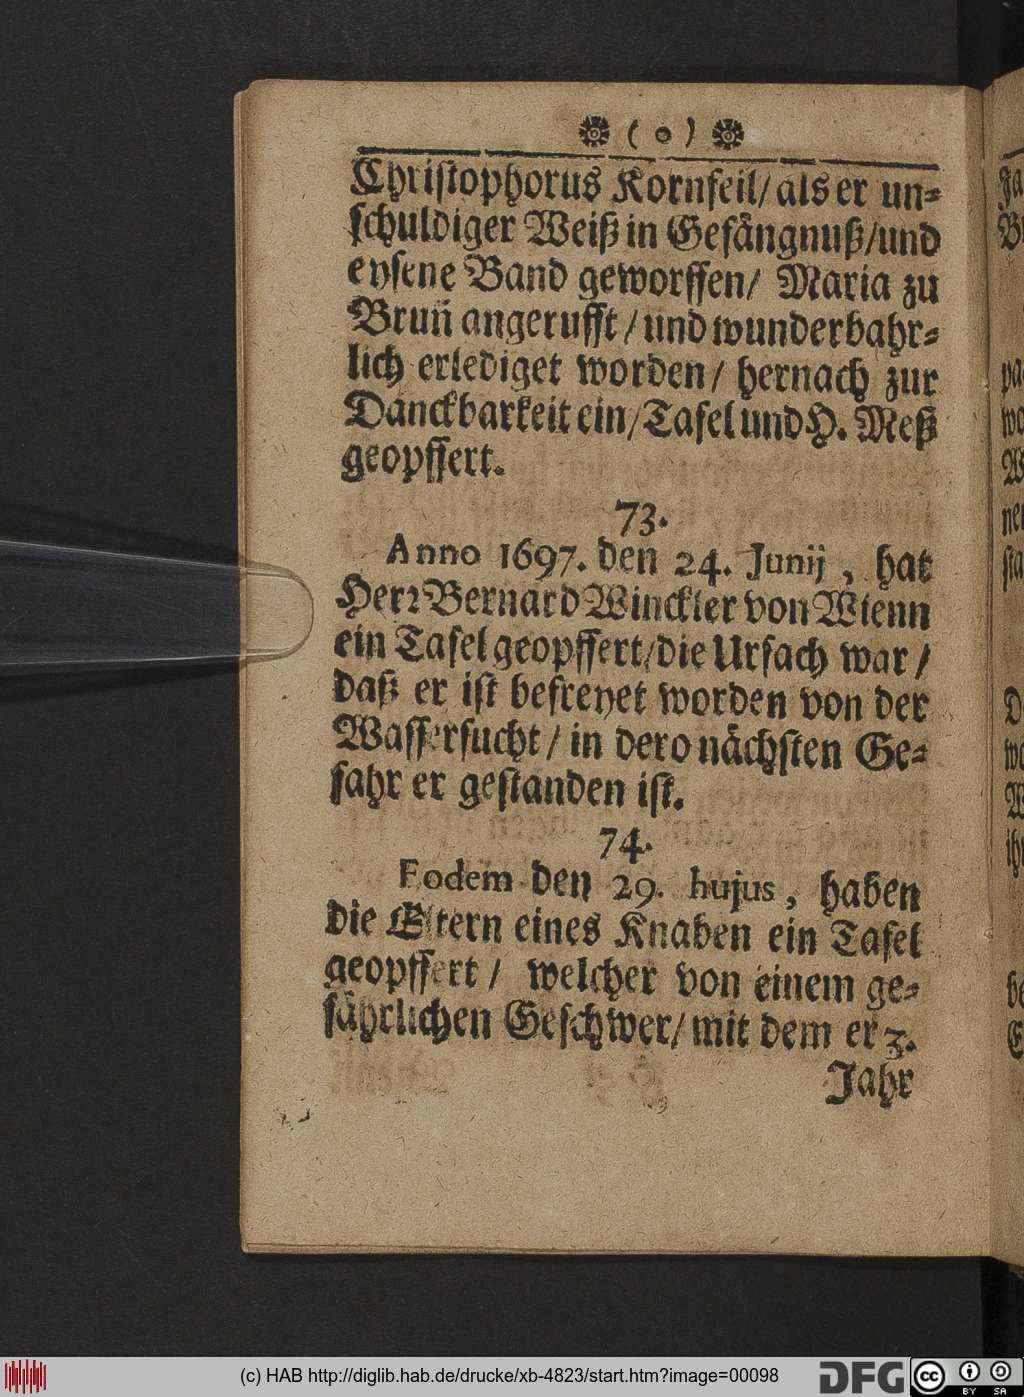 ❁ ( o ) ❁
Christophorus Kornfeil/ als er un-
schuldiger Weiß in Gefängnuß/und
eysene Band geworffen/ Maria zu
Bruñ angerufft / und wunderbahr-
lich erlediget worden / hernach zur
Danckbarkeit ein/Tafel und H. Meß
geopffert.
73.
Anno 1697. den 24. Junij , hat
Herr Bernard Winckler von Wienn
ein Tafel geopffert/die Ursach war /
daß er ist befreyet worden von der
Wassersucht / in dero nächsten Ge-
fahr er gestanden ist.
74.
Eodem den 29. hujus , haben
die Eltern eines Knaben ein Tafel
geopffert / welcher von einem ge-
fährlichen Geschwer/ mit dem er 3.
Jahr
(c) HAB http://diglib.hab.de/drucke/xb-4823/start.htm?image=00098
DFG
cc BY SA